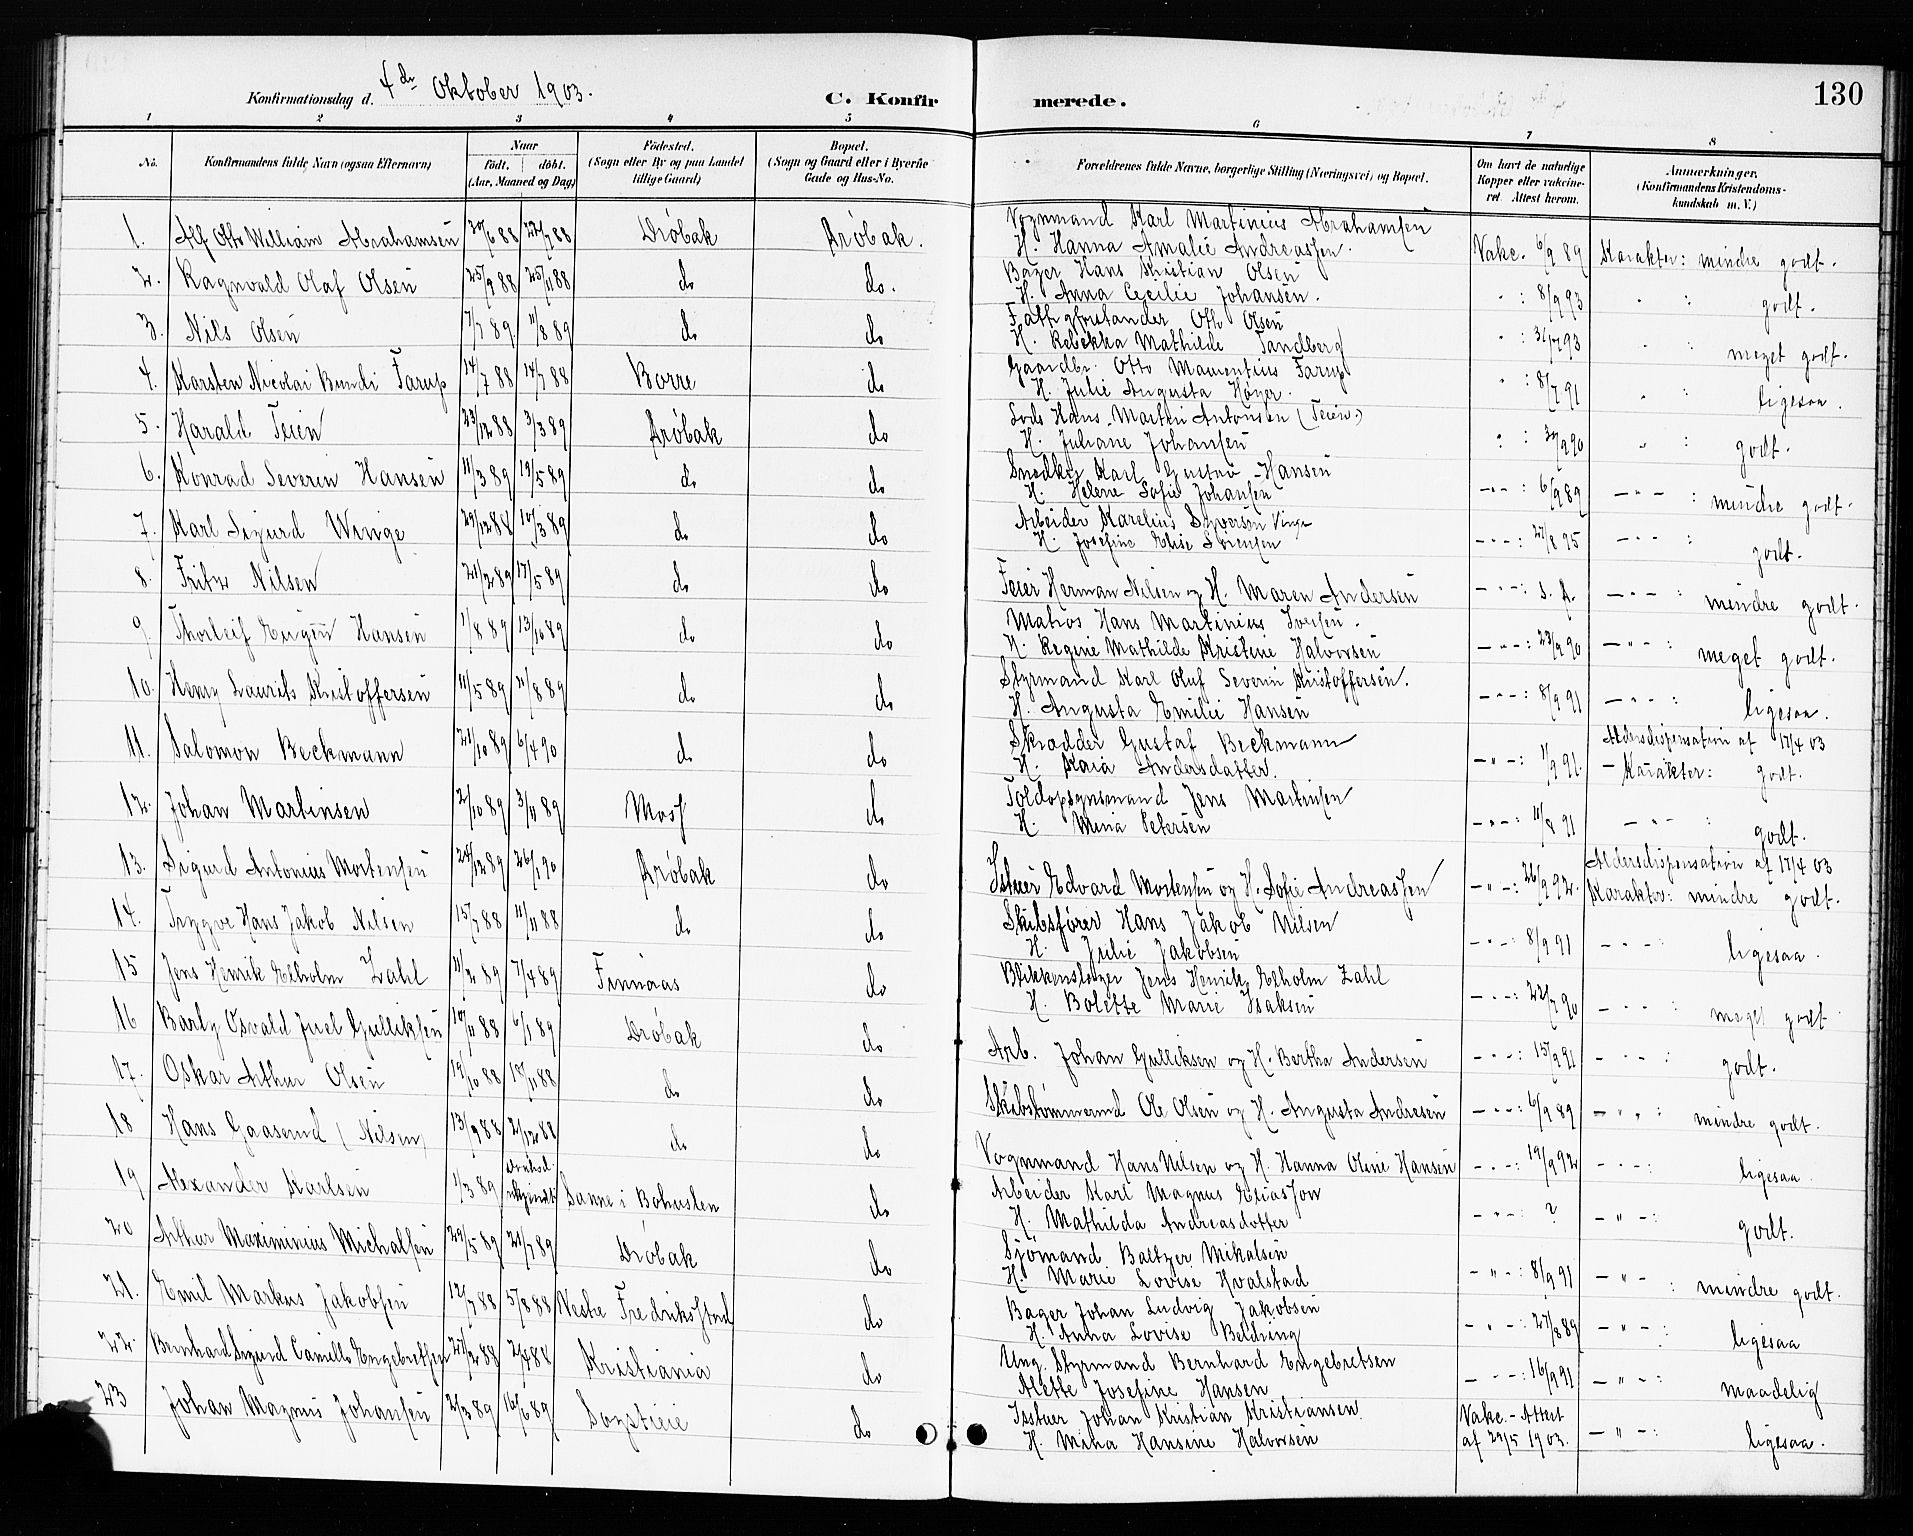 130
Konfirmationsdag d. 4de Oktober 1903.
C. Konfirmerede.
1 2 3 4 5 6 7 8
No. Konfirmandens fulde Navn (ogsaa Efternavn) Naar født. døbt. (Aar, Maaned og Dag) Fødested. (Sogn eller By og paa Landet tillige Gaard) Bopæl. (Sogn og Gaard eller i Byerne Gade og Hus-No. Forældrenes fulde Navne, borgerlige Stilling (Næringsvei) og Bopæl. Om havt de naturlige Kopper eller vakcineret. Attest herom. Anmerkninger. (Konfirmandens Kristendomskundskab m. V.)
1. Alf Otto William Abrahamsen 20/6 88 22/7 88 Drøbak Drøbak. Vognmand Karl Martinius Abrahamsen
H. Hanna Amalie Andreassen. Vakc. 6/9 89 Karakter: mindre godt.
2. Ragnvald Olaf Olsen 25/9 88 25/11 88 do do. Bager Hans Kristian Olsen
H. Anna Cecilie Johansen. " : 8/9 93 " : godt.
3. Nils Olsen 7/7 89 11/8 89 do do Fattigforstander Otto Olsen
H. Rebekka Mathilde Tandberg " : 31/7 93 " : meget godt.
4. Karsten Nicolai Bundi Farup 14/7 88 14/7 88 Borre do Gaardbr. Otto Mamentius Farup
H. Julie Augusta Høyer. " : 8/7 91 " : ligesaa.
5. Harald Teien 23/12 88 3/3 89 Drøbak do Lods Hans Martin Antonsen (Teien)
H. Juliane Johansen " : 30/9 90 " : godt.
6. Konrad Severin Hansen 11/3 89 19/5 89 do do Snedker Karl Gustav Hansen
H. Helene Sofie Johansen - " - : 6/9 89 - " - : mindre godt.
7. Karl Sigurd Winge 29/12 88 10/3 89 do do Arbeider Karelius Syversen Vinge
H. Josefine Elise Sørensen - " - : 27/8 95 - " - : godt.
8. Fritz Nilsen 21/2 89 17/5 89 do do Feier Herman Nilsen og H. Maren Andersen - " - : s. A. - " - : mindre godt.
9. Thorleif Eugen Hansen 1/8 89 13/10 89 do do Matros Hans Martinius Iversen.
H. Regine Mathilde Kristine Halvorsen - " - : 23/9 90 - " - : meget godt.
10. Henry Laurits Kristoffersen 11/5 89 11/8 89 do do Styrmand Karl Oluf Severin Kristoffersen.
H. Augusta Emilie Hansen - " - : 8/9 91 - " - : ligesaa.
11. Salomon Beckmann 21/10 89 6/4 90 do do Skrædder Gustaf Beckmann
H. Kaia Andersdatter. - " - : 1/9 91. Aldersdispensation af 17/4 03
- Karakter: godt.
12. Johan Martinsen 2/10 89 3/11 89 Moss do Toldopsynsmand Jens Martinsen
H. Mina Petersen - " - : 11/8 91 - " - : godt.
13. Sigurd Antonius Mortensen 24/12 89 26/1 90 Drøbak do Edvard Mortensen og H. Sofie Andreassen - " - : 26/9 92. Aldersdispensation af 17/4 03
Karakter: mindre godt.
14. Trygve Hans Jakob Nilsen 15/7 88 11/11 88 do do Skibsfører Hans Jakob Nilsen
H. Julie Jakobsen - " - : 8/9 91 - " - : ligesaa.
15 Jens Henrik Elholm Zahl 11/2 89 7/4 89 Finnaas do Blikkenslager Jens Henrik Elholm Zahl
H. Bolette Marie Isaksen - " - : 22/7 90 - " - : meget godt
16 Barly Osvald Juel Gulliksen 10/11 88 6/1 89 Drøbak do Arb. Johan Gulliksen og H. Bertha Andersen - " - : 15/9 91 - " - : godt.
17. Oskar Arthur Olsen 19/10 88 18/11 88 do do Skibstømmermd Ole Olsen og H. Augusta Andresen - " - : 6/9 89 - " - : mindre godt.
18 Hans Gaaserud (Nilsen) 13/9 88 2/12 88 do do Vognmand Hans Nilsen og H. Hanna Oline Hansen - " - : 19/9 92 - " - : ligesaa.
19 Alexander Karlsen 1/3 89 Sanne i Bohuslen do Arbeider Karl Magnus Eliasson
H. Mathilda Andreasdotter - " - ? - " - : godt.
20 Arthur Maximinius Michalsen 29/5 89 21/7 89 Drøbak do Sjømand Baltzer Mikalsen
H. Marie Lovise Hvalstad - " - : 8/9 91 - " - : mindre godt.
21. Emil Markus Jakobsen 12/7 88 5/8 88 Vestre Fredriksstad do Bager Johan Ludvig Jakobsen
H. Anna Lovise Beldring - " - : 27/8 89 - " - : ligesaa
22. Bernhard Sigurd Camillo Engebretsen 27/2 88 2/4 88 Kristiania do Ung. Styrmand Bernhard Engebretsen
Alette Josefine Hansen - " - : 16/9 91 - " - : maadelig
23 Johan Magnus Johansen 2/3 89 16/6 89 do Johan Kristian Kristiansen
H. Mina Hansine Halvorsen Vakc.-Attest
af 29/5 1903. - " - : ligesaa.